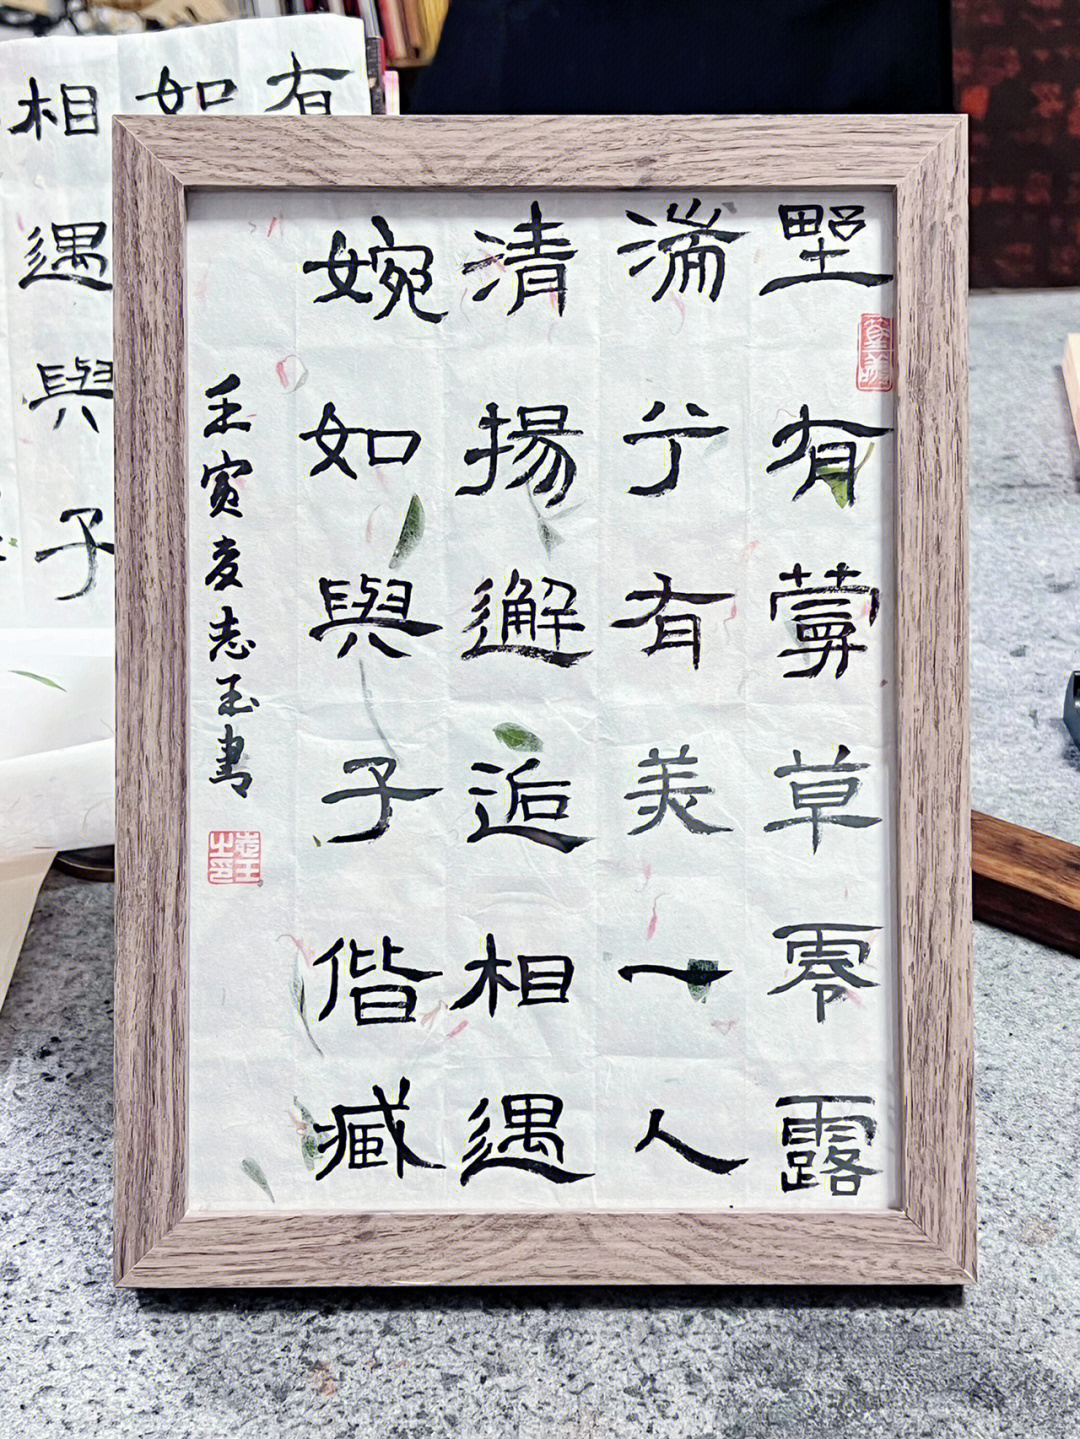 野有蔓草零露
漙兮有美一人
清揚邂逅相遇
婉如與子偕臧
壬寅夏志玉書
有
如
相遇與子